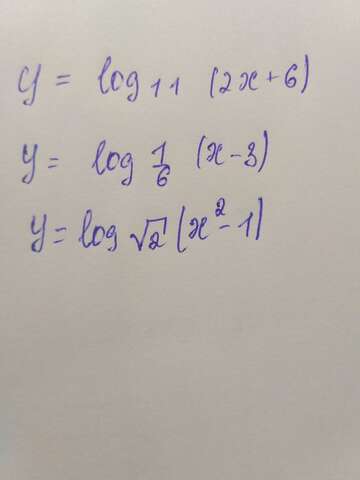 y = log₁₁ (2x+6)
y = log 1/6 (x-3)
y = log √2 (x²-1)